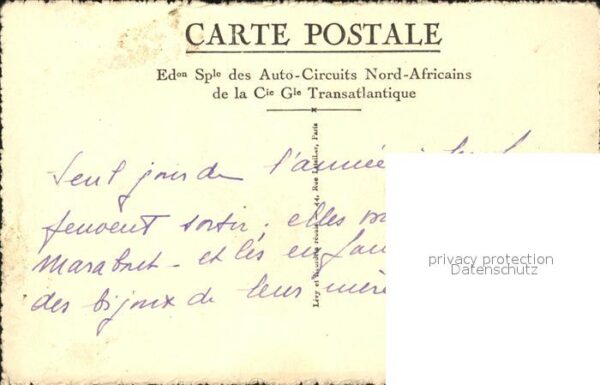 CARTE POSTALE
Edon Sple des Auto-Circuits Nord-Africains
de la Cie Gle Transatlantique
Lévy et Neurdein réunis, 44, Rue Letellier, Paris
Seul jour de l'année
peuvent sortir; elles
marabout - et les enfan
des bijoux de leur mère
privacy protection
Datenschutz